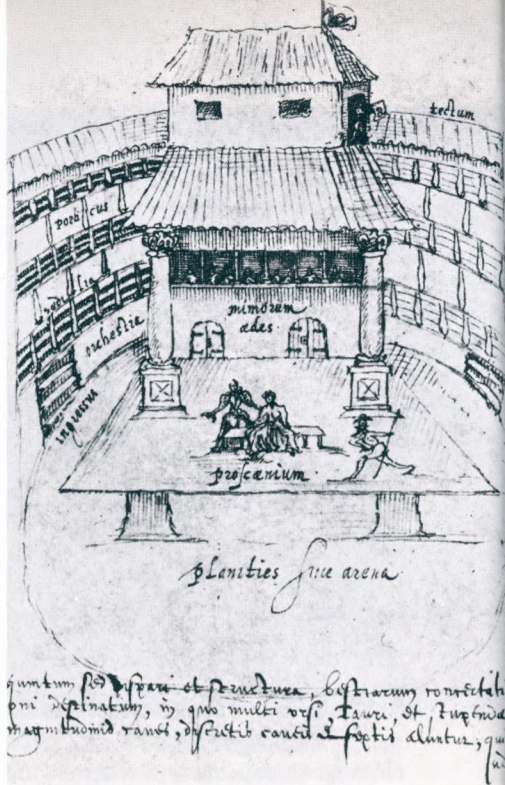 tectum
porticus
sedilia
orchestra
mimorum
ædes
ingressus
proscænium
planities sive arena
quintum sed dispari et structura, bestiarum concertati
oni destinatum, in quo multi ursi, Tauri, et stupendæ
magnitudinis canes, discretis caveis et septis aluntur, qui